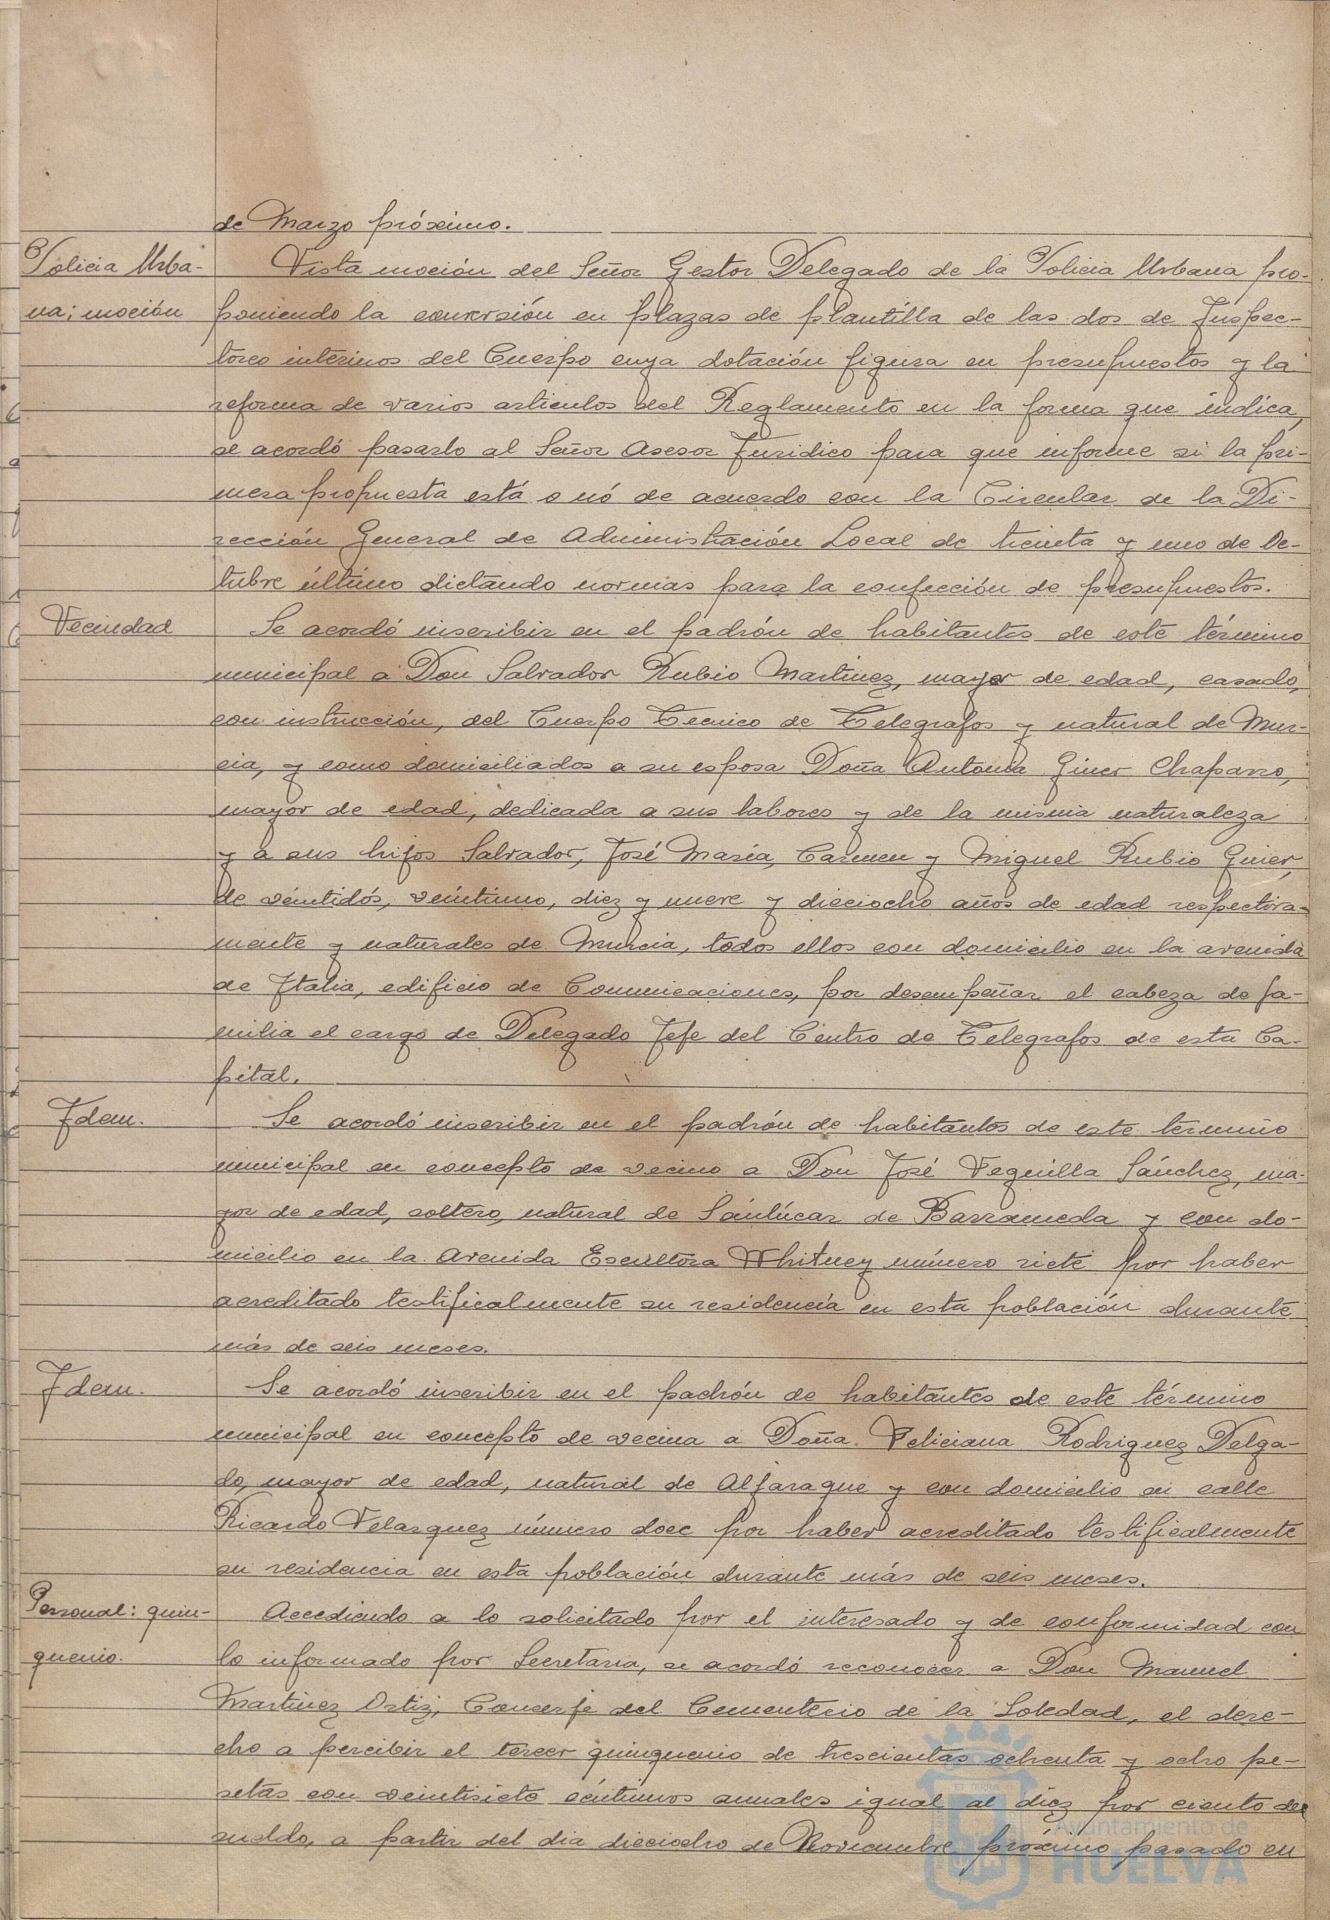 de Marzo próximo.
Policia Urba-
na; moción
Vista moción del Señor Gestor Delegado de la Policia Urbana pro-
poniendo la conversión en plazas de plantilla de las dos de Inspec-
tores interinos del Cuerpo cuya dotación figura en presupuestos y la
reforma de varios articulos del Reglamento en la forma que indica,
se acordó pasarlo al Señor Asesor Juridico para que informe si la pri-
mera propuesta está o nó de acuerdo con la Circular de la Di-
rección General de Administración Local de treinta y uno de Oc-
tubre último dictando normas para la confección de presupuestos.
Vecindad
Se acordó inscribir en el padrón de habitantes de este término
municipal a Don Salvador Rubio Martinez, mayor de edad, casado,
con instrucción, del Cuerpo Tecnico de Telegrafos y natural de Mur-
cia, y como domiciliados a su esposa Doña Antonia Giner Chaparro,
mayor de edad, dedicada a sus labores y de la misma naturaleza
y a sus hijos Salvador, José Maria, Carmen y Miguel Rubio Giner,
de veintidós, veintiuno, diez y nueve y dieciocho años de edad respectiva-
mente y naturales de Murcia, todos ellos con domicilio en la avenida
de Italia, edificio de Comunicaciones, por desempeñar el cabeza de fa-
milia el cargo de Delegado Jefe del Centro de Telegrafos de esta Ca-
pital.
Idem.
Se acordó inscribir en el padrón de habitantes de este termino
municipal en concepto de vecino a Don José Veguilla Sánchez, ma-
yor de edad, soltero, natural de Sanlúcar de Barrameda y con do-
micilio en la Avenida Escultora Whitney número siete por haber
acreditado testificalmente su residencia en esta población durante
más de seis meses.
Idem.
Se acordó inscribir en el padrón de habitantes de este término
municipal en concepto de vecina a Doña Feliciana Rodriguez Delga-
do, mayor de edad, natural de Aljaraque y con domicilio en calle
Ricardo Velazquez número doce por haber acreditado testificalmente
su residencia en esta población durante más de seis meses.
Personal: quin-
quenio.
Accediendo a lo solicitado por el interesado y de conformidad con
lo informado por Secretaria, se acordó reconocer a Don Manuel
Martinez Ortiz, Conserje del Cementerio de la Soledad, el dere-
cho a percibir el tercer quinquenio de trescientas ochenta y ocho pe-
setas con veintisiete céntimos anuales igual al diez por ciento del
sueldo, a partir del dia dieciocho de Noviembre próximo pasado en
Ayuntamiento de
HUELVA